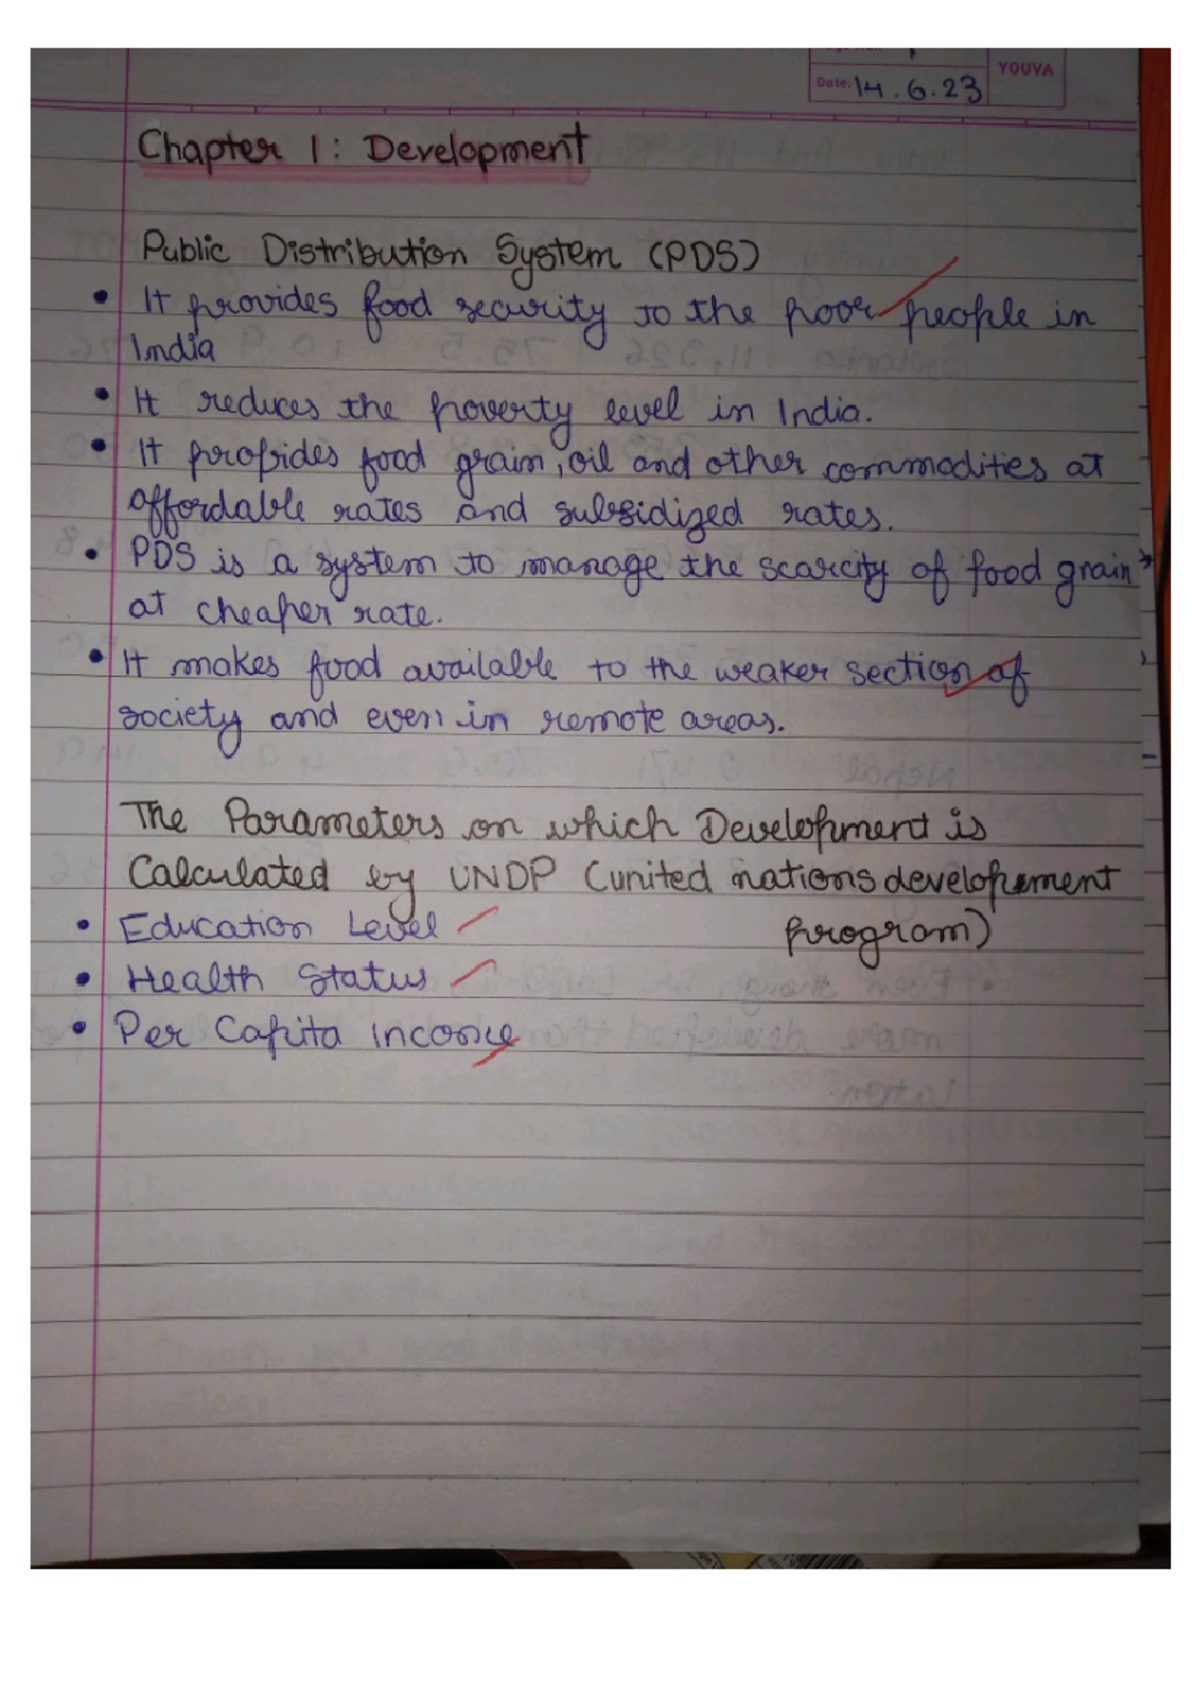 Date: 14.6.23
YOUVA
Chapter 1: Development
Public Distribution System (PDS)
• It provides food security to the poor people in
India
• It reduces the poverty level in India.
• It profides food grain, oil and other commodities at
affordable rates and subsidized rates.
• PDS is a system to manage the scarcity of food grain
at cheaper rate.
• It makes food available to the weaker section of
society and even in remote areas.
The Parameters on which Development is
Calculated by UNDP (united nations development
program)
• Education Level
• Health Status
• Per Capita income